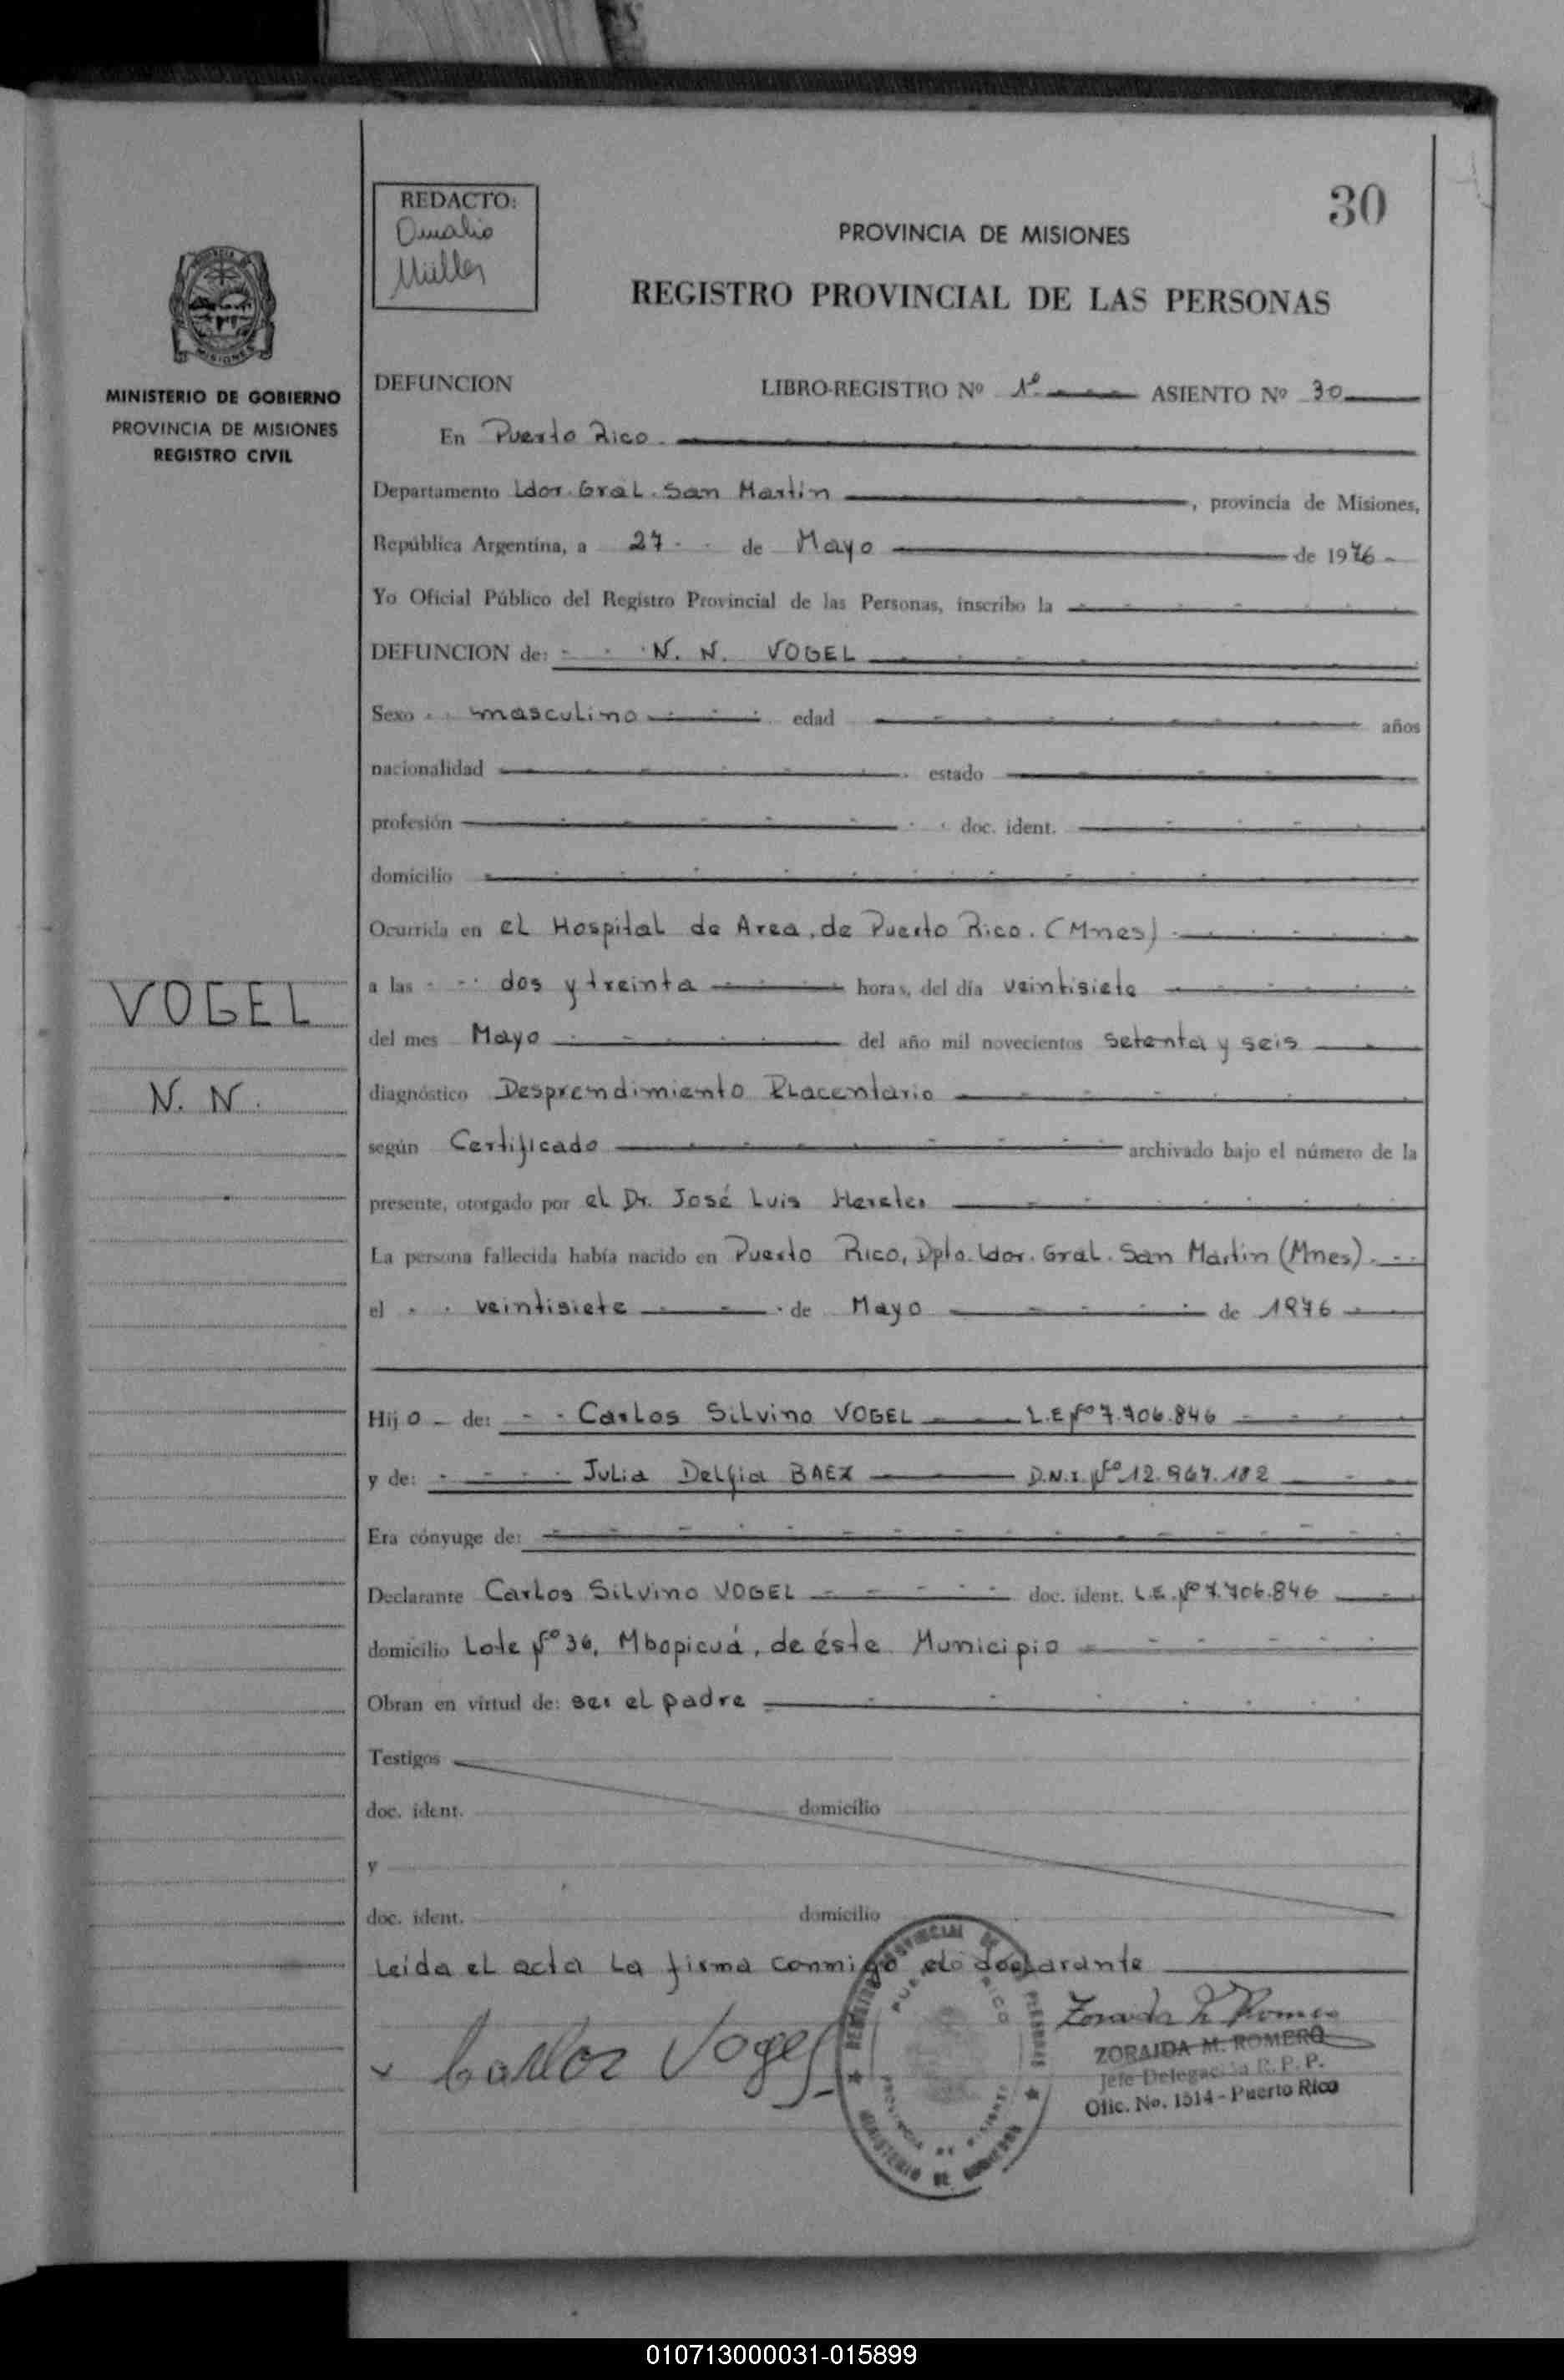 30
REDACTO:
Amalio
Müller
PROVINCIA DE MISIONES
REGISTRO PROVINCIAL DE LAS PERSONAS
MISIONES
MINISTERIO DE GOBIERNO
PROVINCIA DE MISIONES
REGISTRO CIVIL
DEFUNCION LIBRO-REGISTRO Nº 1º ASIENTO Nº 30
En Puerto Rico.
Departamento Ldor. Gral. San Martín, provincia de Misiones,
República Argentina, a 27 de Mayo de 1976
Yo Oficial Público del Registro Provincial de las Personas, inscribo la
DEFUNCION de: N. N. VOGEL
Sexo masculino edad años
nacionalidad estado
profesión doc. ident.
domicilio
Ocurrida en el Hospital de Area, de Puerto Rico. (Mnes)
VOGEL
N. N.
a las dos y treinta horas, del día veintisiete
del mes Mayo del año mil novecientos setenta y seis
diagnóstico Desprendimiento Placentario
según Certificado archivado bajo el número de la
presente, otorgado por el Dr. José Luis
La persona fallecida había nacido en Puerto Rico, Dpto. Ldor. Gral. San Martin (Mnes).
el veintisiete de Mayo de 1976
Hijo de: Carlos Silvino VOGEL L.E Nº 7.706.846
y de: Julia Delfia BAEZ D.N.I. Nº 12.967.182
Era cónyuge de:
Declarante Carlos Silvino VOGEL doc. ident. L.E. Nº 7.706.846
domicilio Lote Nº 36, Mbopicuá, de éste Municipio
Obran en virtud de: ser el padre
Testigos
doc. ident. domicilio
y
doc. ident. domicilio
Leida el acta la firma conmigo el declarante
Carlos Vogel
ZORAIDA M. ROMERO
Jefe Delegación R. P. P.
Ofic. No. 1514 - Puerto Rico
REGISTRO PROVINCIAL DE LAS PERSONAS
PUERTO RICO
PROVINCIA DE MISIONES
MINISTERIO DE GOBIERNO
010713000031-015899